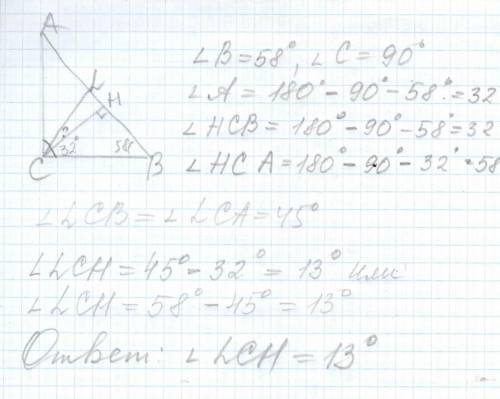 A
L
H
C 32° 58° B
∠B = 58°, ∠C = 90°
∠A = 180° - 90° - 58° = 32
∠HCB = 180° - 90° - 58° = 32
∠HCA = 180° - 90° - 32° = 58
∠LCB = ∠LCA = 45°
∠LCH = 45° - 32° = 13° или
∠LCH = 58° - 45° = 13°
Ответ: ∠LCH = 13°